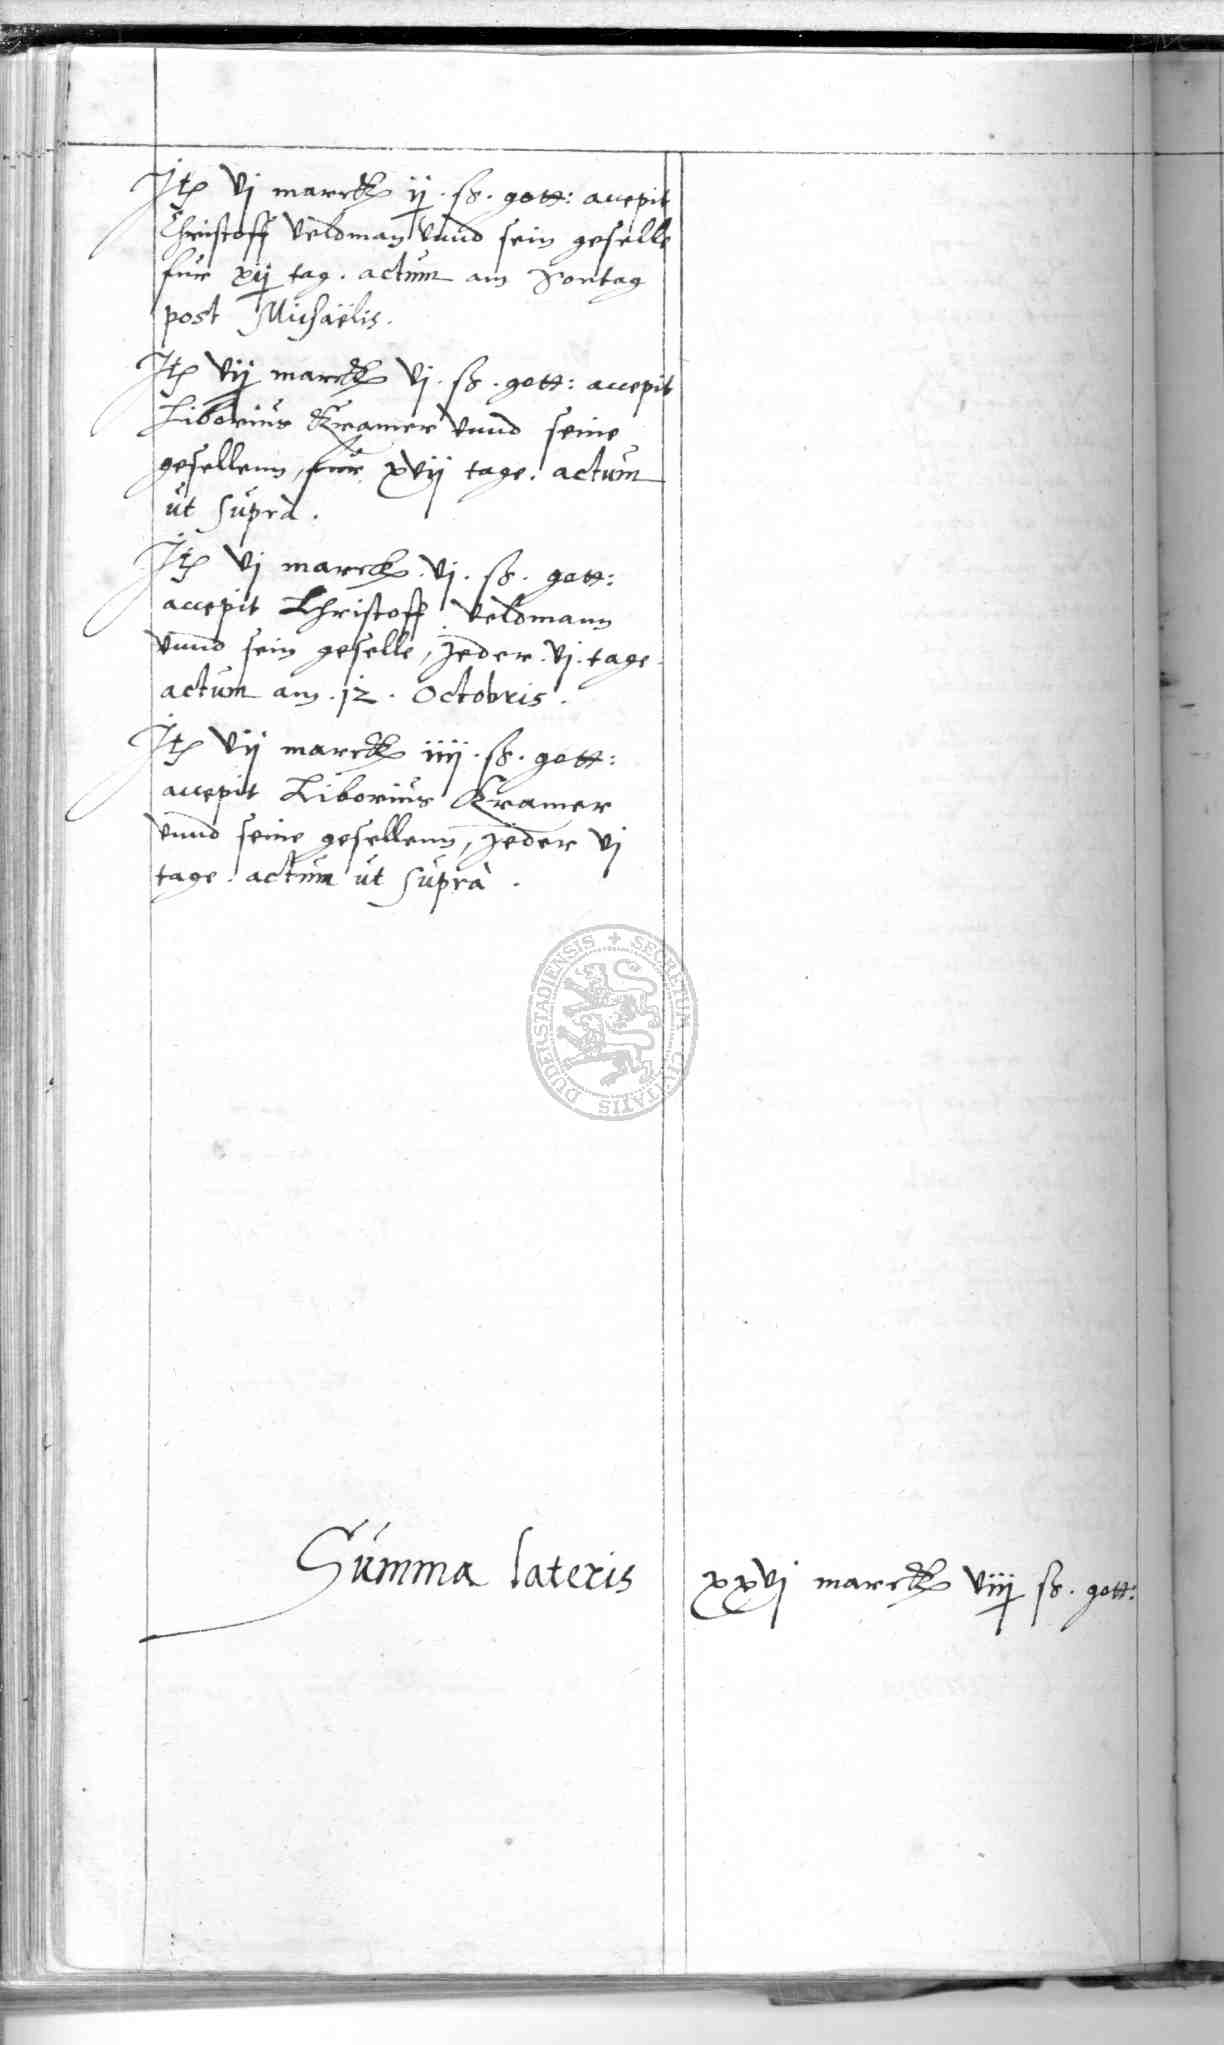 Jtem vj marck ij . ß . gott: accepit
Christoff Veldman vnnd sein geselle
fur xij tag . actum am Sontag
post Michaëlis .
Jtem vij marck vj . ß . gott: accepit
Liborius Kramer vnnd seine
gesellenn, fur xvij tage . actum
ut suprà .
Jtem vj marck . vj . ß . gott:
accepit Christoff Veldmann
vnnd sein geselle, jeder . vj . tage .
actum am . 12 . Octobris .
Jtem vij marck iiij . ß . gott:
accepit Liborius Kramer
vnnd seine gesellenn, jeder vj
tage . actum ut suprà .
SECRETUM CIVITATIS DUDERSTADIENSIS
Summa lateris xxvj marck viij ß . gott: